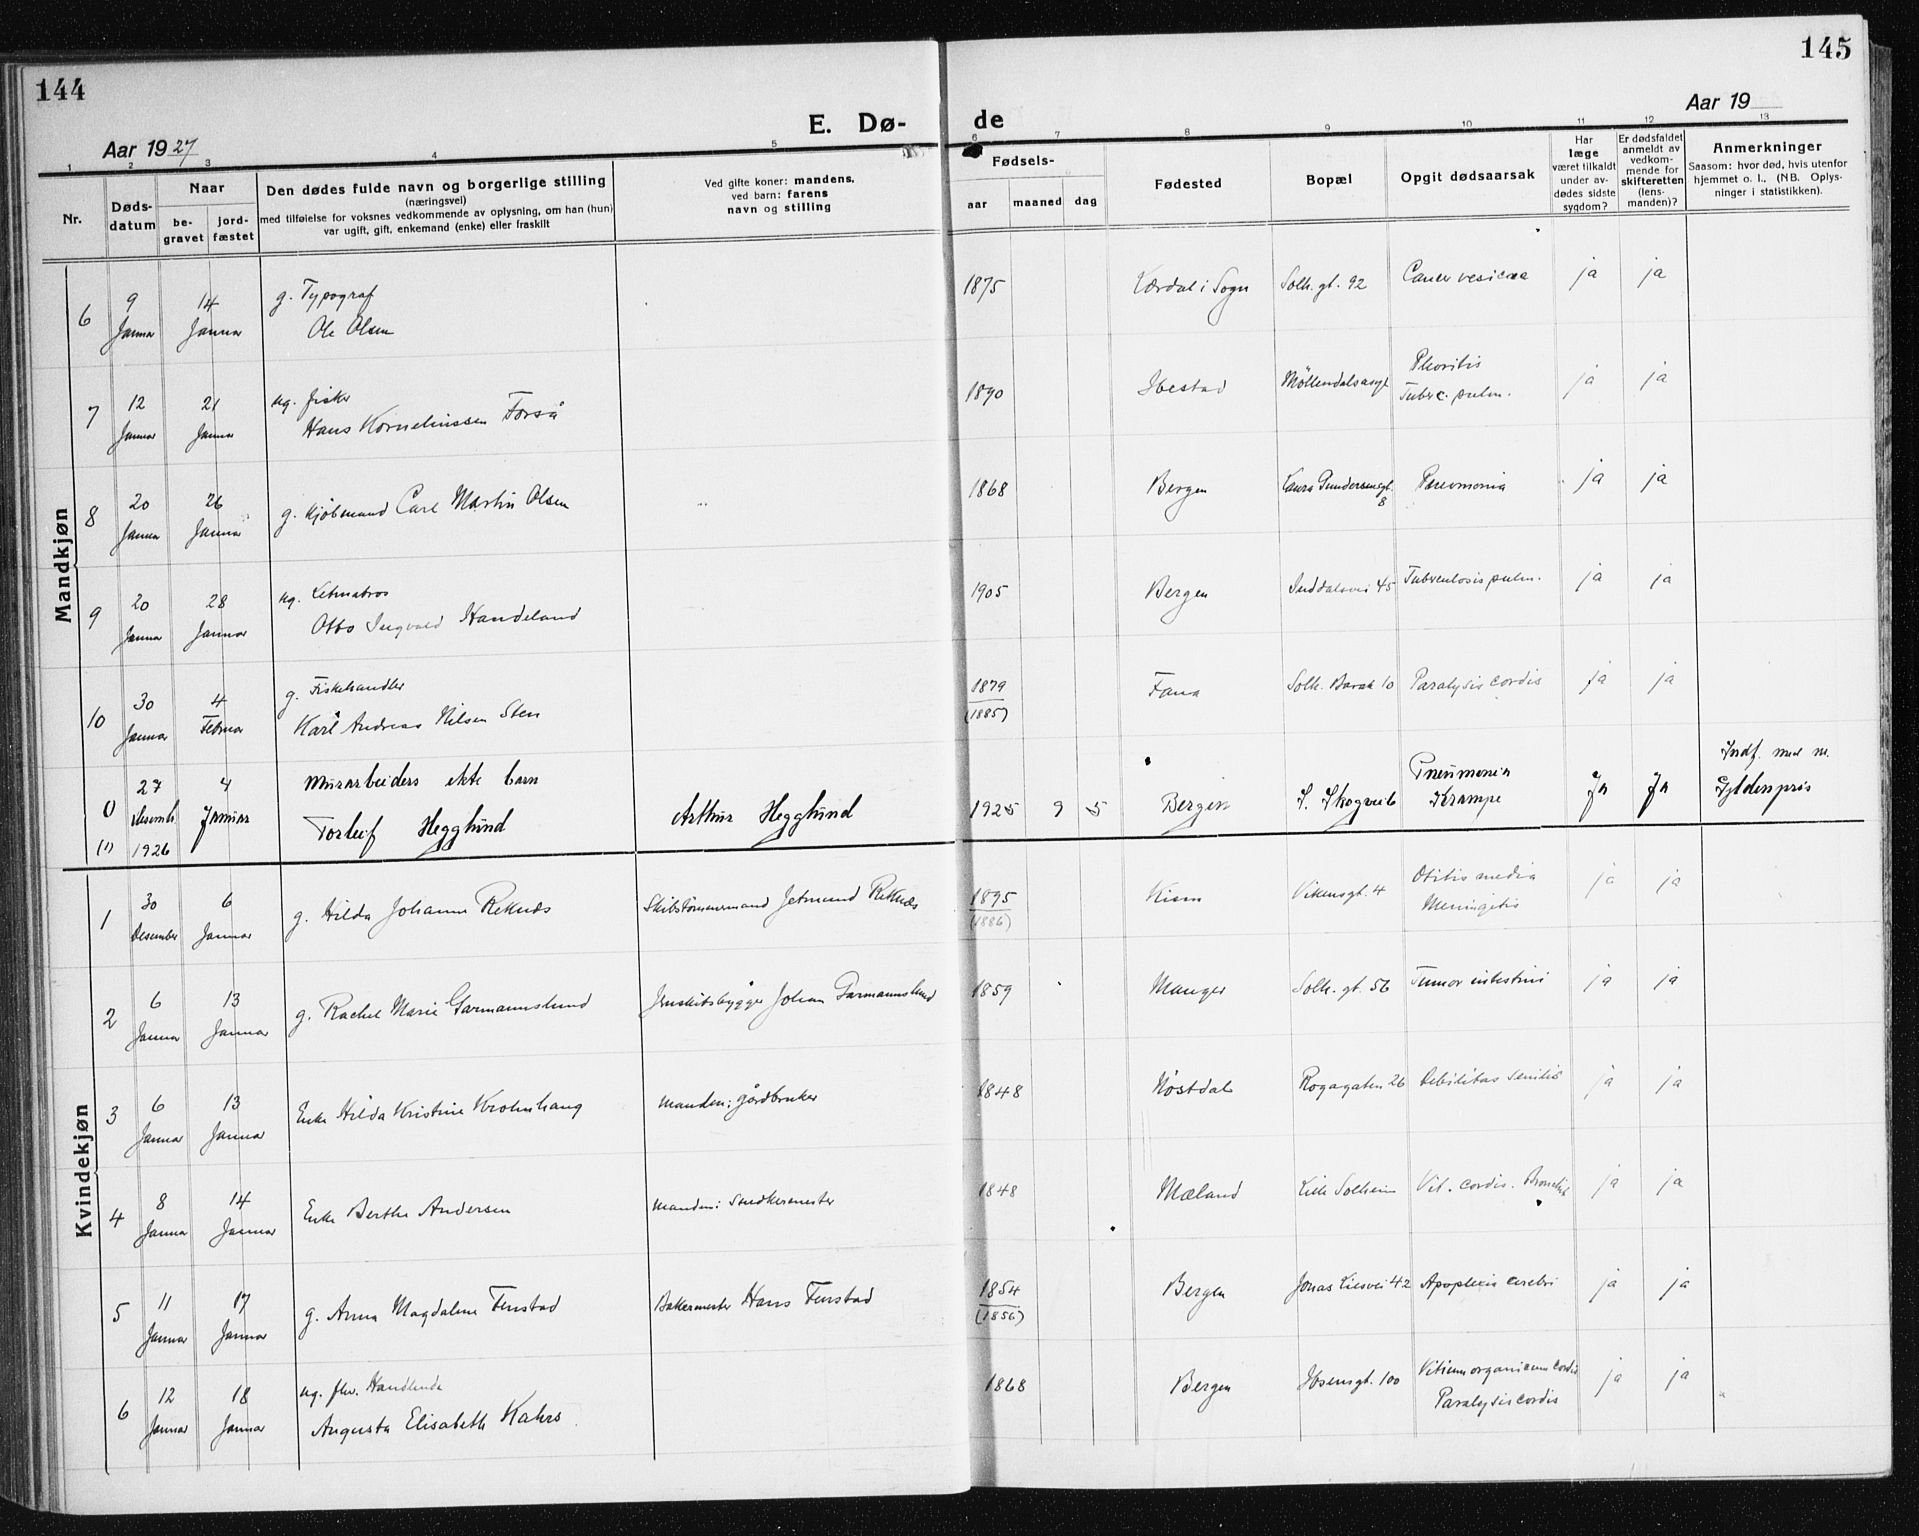 144
145
E. Dø- de
Aar 1927
Aar 19
1 2 3 4 5 6 7 8 9 10 11 12 13
Nr.
Døds-
datum
Naar
be-
gravet
jord-
fæstet
Den dødes fulde navn og borgerlige stilling
(næringsvei)
med tilføielse for voksnes vedkommende av oplysning, om han (hun)
var ugift, gift, enkemand (enke) eller fraskilt
Ved gifte koner: mandens,
ved barn: farens
navn og stilling
Fødsels-
aar maaned dag
Fødested
Bopæl
Opgit dødsaarsak
Har
læge
været tilkaldt
under av-
dødes sidste
sygdom?
Er dødsfaldet
anmeldt av
vedkom-
mende for
skifteretten
(lens-
manden)?
Anmerkninger
Saasom: hvor død, hvis utenfor
hjemmet o. l., (NB. Oplys-
ninger i statistikken).
Mandkjøn
6 9 Januar 14 Januar g. Typograf
Ole Olsen
1875 Lærdal i Sogn Solh. gt. 92 Cancer vesicaa ja ja
7 12 Januar 21 Januar ug. fisker
Hans Korneliussen Forså
1890 Ibestad Møllendalsasyl Pleoritis
Tuberc. pulm. ja ja
8 20 Januar 26 Januar g. Kjøbmand Carl Martin Olsen
1868 Bergen Laura Gundersensgt. 8 Pneomonia ja ja
9 20 Januar 28 Januar ug. Letmatros
Otto Ingvald Handeland
1905 Bergen Inddalsvei 45 Tuberculosis pulm. ja ja
10 30 Januar 4 Februar g. Fiskehandler
Karl Andreas Nilsen Sten
1879
(1885) Fana Solh. Barak 10 Paralysis cordis ja ja
0
(1) 27 Desemb. 1926 4 Januar Murarbeiders ekte barn
Torleif Hegglund
Arthur Hegglund
1925 9 5 Bergen S. Skogvei 6 Pneumonia
Krampe Ja Ja Indf. med nr.
Gyldenpris
Kvindekjøn
1 30 Desember 6 Januar g. Hilda Johanne Reknes
Skibstømmermand Jetmund Reknes
1895
(1886) Kinn Vikensgt. 4 Otitis media
Meningitis ja ja
2 6 Januar 13 Januar g. Rachel Marie Garmannslund
Jernskibsbygger Johan Garmannslund
1859 Manger Solh. gt. 56 Tumor intestini ja ja
3 6 Januar 13 Januar Enke Hilda Kristine Krohnhaug
manden: gårdbruker
1848 Nøstdal Rogagaten 26 Debilitas senilis ja ja
4 8 Januar 14 Januar Enke Berthe Andersen
manden: Snedkermester
1848 Mæland Lille Solheim Vit. cordis. ja ja
5 11 Januar 17 Januar g. Anna Magdalene Fenstad
Bakermester Hans Fenstad
1854
(1856) Bergen Jonas Liesvei 42 Apoplexia cerebri ja ja
6 12 Januar 18 Januar ug. fhv. Handlende
Augusta Elisabeth Kahrs
1868 Bergen Ibsensgt. 100 Vitium organicum cordis
Paralysis cordis ja ja